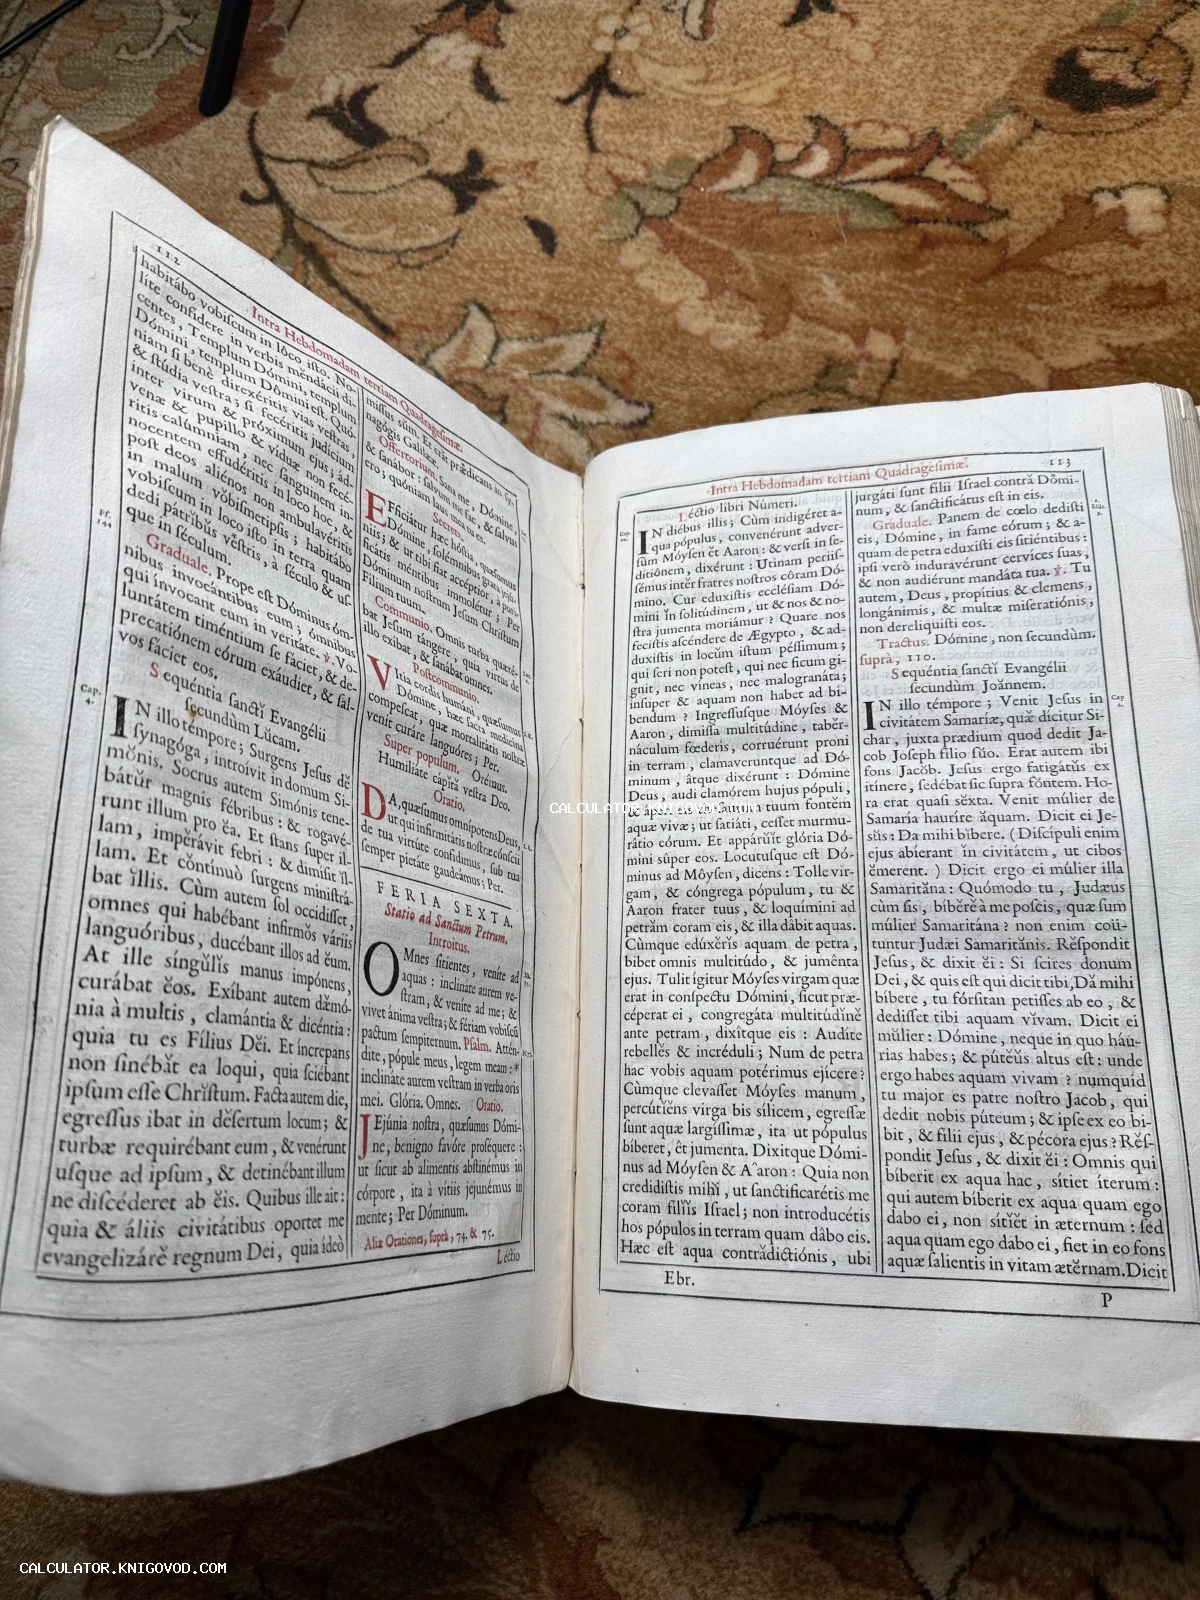 112
Intra Hebdomadam tertiam Quadragesimæ.
habitábo vobiſcum in lóco iſto. No-
lite confidere in verbis mĕndácii di-
centes, Templum Dómini, templum
Dómini, templum Dômini eſt. Quó-
niam ſi benè direxéritis vias veſtras,
& ſtúdia veſtra; ſi fecéritis judícium
inter virum & próximum ejus; ád-
venæ & pupíllo & viduæ non fecé-
ritis calúmniam, nec ſanguinem in-
nocentem effudéritis in loco hoc, &
poſt deos aliénos non ambulavéritis
in malum vóbiſmetipſis; habitábo
vobiſcum in loco iſto, in terra quam
dedi pátrĭbŭs vĕſtris, à ſéculo & uſ-
que in ſéculum.
Pſ. 144
Graduale. Prope eſt Dóminus óm-
nibus invocántibus eum; ómnibus
qui ínvocant eum in veritáte. ℣. Vo-
luntátem timéntium ſe fáciet, & de-
precatiónem córum exáudiet, & ſál-
vos fáciet eos.
Sequéntia ſanctĭ Evangélii
ſecundùm Lŭcam.
Cap. 4.
IN illo témpore; Surgens Jeſus dĕ
ſynagóga, introívit in domum Si-
mŏnis. Socrus autem Simónis tene-
bátŭr magnis fébribus: & rogavé-
runt illum pro ĕa. Et ſtans ſuper il-
lam, impĕrávit febri: & dimíſit ĭl-
lam. Et cŏntinuò ſurgens miniſtrá-
bat ĭllis. Cùm autem ſol occidíſſet,
omnes qui habébant infirmŏs váriis
languóribus, ducébant illos ad ĕum.
At ille síngŭlĭs manus impónens,
curábat ĕos. Exíbant autem dæmó-
nia à multis, clamántia & dicéntia:
quia tu es Fílius Dĕi. Et íncrepans
non ſinébăt ea loqui, quia ſciébant
ipſum eſſe Chrĭſtum. Facta autem die,
egreſſus ibat in dĕſertum locum; &
turbæ requirébant eum, & venérunt
uſque ad ipſum, & detinébant illum
ne diſcéderet ab ĕis. Quibus ille ait:
quia & áliis civitátibus oportet me
evangelizárĕ regnum Dei, quia ídeò
miſſus sŭm. Et erăt prædicans in ſy-
nagógis Galilææ.
Offertorium. Sana me, Dómine,
& ſanábor: ſalvum me fac, & ſalvus
ero; quóniam laus mea tu es.
Secreta.
EFficiátur hæc hóſtia, quæſumus
Dómine, ſolémnibus grata jejú-
niis; & ut tibi fiat accéptior, à puri-
ficátis méntibus immolétur; Per
Dóminum noſtrum Jeſum Chriſtum
Filium tuum.
Communio. Omnis turba quæré-
bat Jeſum tángere, quia virtus de
illo exibat, & ſanábat omnes.
Poſtcommunio.
VItia cordis humáni, quæſumus
Dómine, hæc ſacra medicina
compeſcat, quæ mortalitátis noſtræ
venit curáre languóres; Per.
Super populum. Orémus.
Humiliáte cápĭtă veſtra Deo.
Oratio.
DA, quæſumus omnípotens Deus,
ut qui infirmitátis noſtræ cónſcii
de tua virtúte confidimus, ſub tua
ſemper pietáte gaudeámus; Per.
FERIA SEXTA.
Statio ad Sanctum Petrum.
Introitus.
OMnes ſitientes, veníte ad
aquas: inclináte aurem ve-
ſtram, & veníte ad me; &
vivet ánima veſtra; & fériam vobiſcū
pactum ſempiternum. Pſalm. Attén-
dite, pópule meus, legem meam: *
inclináte aurem veſtram in verba oris
mei. Glória. Omnes. Oratio.
JEjúnia noſtra, quæſumus Dómi-
ne, benigno favóre proſequere:
ut ſicut ab alimentis abſtinémus in
córpore, ita à vítiis jejunémus in
mente; Per Dóminum.
Aliæ Orationes, ſuprà, 74. & 75.
Léctio
Intra Hebdomadam tertiam Quadrageſimæ.
113
Léctio libri Númeri.
IN diébus illis; Cùm indigéret a-
qua pópulus, convenérunt adver-
ſùm Móyſen ĕt Aaron: & verſi in ſe-
ditiónem, dixérunt: Utinam periiſ-
ſémus intĕr fratres noſtros côram Dó-
mino. Cur eduxíſtis eccléſiam Dó-
mini ĭn ſolitúdinem, ut & nos & no-
ſtra jumenta moriámur? Quare nos
feciſtis aſcéndere de Ægypto, & ad-
duxíſtis in locŭm iſtum péſſimum;
qui ſeri non poteſt, qui nec ficum gi-
gnit, nec víneas, nec malogranáta;
ínſuper & aquam non habet ad bi-
bendum? Ingreſſuſque Móyſes &
Aaron, dimíſſa multitúdine, tabĕr-
náculum fœderis, corruérunt proni
in terram, clamaveruntque ad Dó-
minum, âtque dixérunt: Dómine
Deus, audi clamórem hujus pópuli,
aquæ vivæ; ut ſatiáti, ceſſet murmu-
rátio córum. Et appárŭĭt glória Dó-
mini sûper eos. Locutuſque eſt Dó-
minus ad Môyſen, dicens: Tolle vir-
gam, & cóngrega pópulum, tu &
Aaron frater tuus, & loquímini ad
petrăm coram eis, & illa dâbit aquas.
Cùmque edúxĕrĭs aquam de petra,
bibet omnis multitúdo, & jumênta
ejus. Tulit ígitur Móyſes virgam quæ
erat in conſpectu Dómini, ſicut præ-
céperat ei, congregáta multitŭdĭnĕ
ante petram, dixítque eis: Audíte
rebellĕs & incréduli; Num de petra
hac vobis aquam potérimus ejícere?
Cùmque elevaſſet Móyſes manum,
percútiĕns virga bis sílicem, egreſſæ
ſunt aquæ largíſſimæ, ita ut pópulus
bíberet, ĕt jumenta. Dixitque Dómi-
nus ad Móyſen & Aˊaron: Quia non
credidíſtis mihĭ, ut ſanctificarétis me
coram filĭĭs Iſrael; non introducétis
hos pópulos in terram quam dâbo eis.
Hæc eſt aqua contrădictiónis, ubi
jurgáti ſunt filii Iſrael contră Dŏmi-
num, & ſanctificátus eſt in eis.
Graduale. Panem de cœlo dediſti
eis, Dómine, in fame eórum; & a-
quam de petra eduxíſti eis ſitiéntibus:
ipſi verò induravérunt cervíces ſuas,
& non audiérunt mandáta tua. ℣. Tu
autem, Deus, propítius & clemens,
longánimis, & multæ miſeratiónis,
non dereliquiſti eos.
Tractus. Dómine, non ſecundùm.
ſuprà, 110.
Sequéntia ſanctĭ Evangélii
ſecundùm Joănnem.
IN illo témpore; Venit Jeſus in
civitátem Samaríæ, quæ dícitur Si-
char, juxta prædium quod dedit Ja-
cob Joſeph fílio ſŭo. Erat autem ibi
fons Jacŏb. Jeſus ergo fatigátŭs ex
itínere, ſedébat ſic ſupra fŏntem. Ho-
ra erat quaſi sĕxta. Venit múlier de
Samaría hauríre ăquam. Dicit ei Je-
sŭs: Da mihi bĭbere. (Diſcípuli enim
ejus abíerant ĭn civitátem, ut cibos
ĕmerent.) Dicit ergo ei múlier illa
Samaritâna: Quómodo tu, Judæus
cùm ſis, bíbĕrĕ à me poſcis, quæ ſum
múlier Samaritána? non enim coū-
tuntur Judæi Samaritănis. Rĕſpondit
Jeſus, & dixit ĕi: Si ſcires donum
Dei, & quis eſt qui dicit tibi, Dă mihi
bíbere, tu fórſitan petiſſes ab eo, &
dediſſet tibi aquam vĭvam. Dicit ei
mŭlier: Dómine, neque in quo háu-
rias habes; & pútĕŭs altus eſt: unde
ergo habes aquam vivam? numquid
tu major es patre noſtro Jacob, qui
dedit nobis púteum; & ipſe ex eo bi-
bit, & filii ejus, & pécora ejus? Rĕſ-
pondit Jeſus, & dixit ĕi: Omnis qui
bíberit ex aqua hac, sítiet íterum:
qui autem bíberit ex aqua quam ego
dabo ei, non sítĭĕt in æternum: ſed
aqua quam ego dabo ei, fiet in eo fons
aquæ ſalientis in vitam ætĕrnam. Dicit
Ebr.
P
CALCULATOR.KNIGOVOD.COM
CALCULATOR.KNIGOVOD.COM